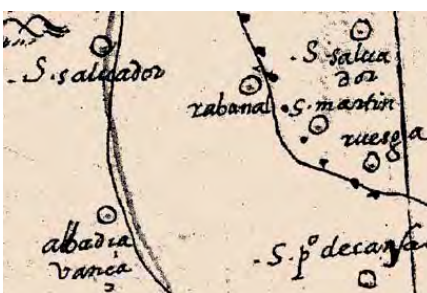 S. salua
dor
. S. saluador
rabanal
S. martin
ruesga
abbadia
vança
. S. pº decansa